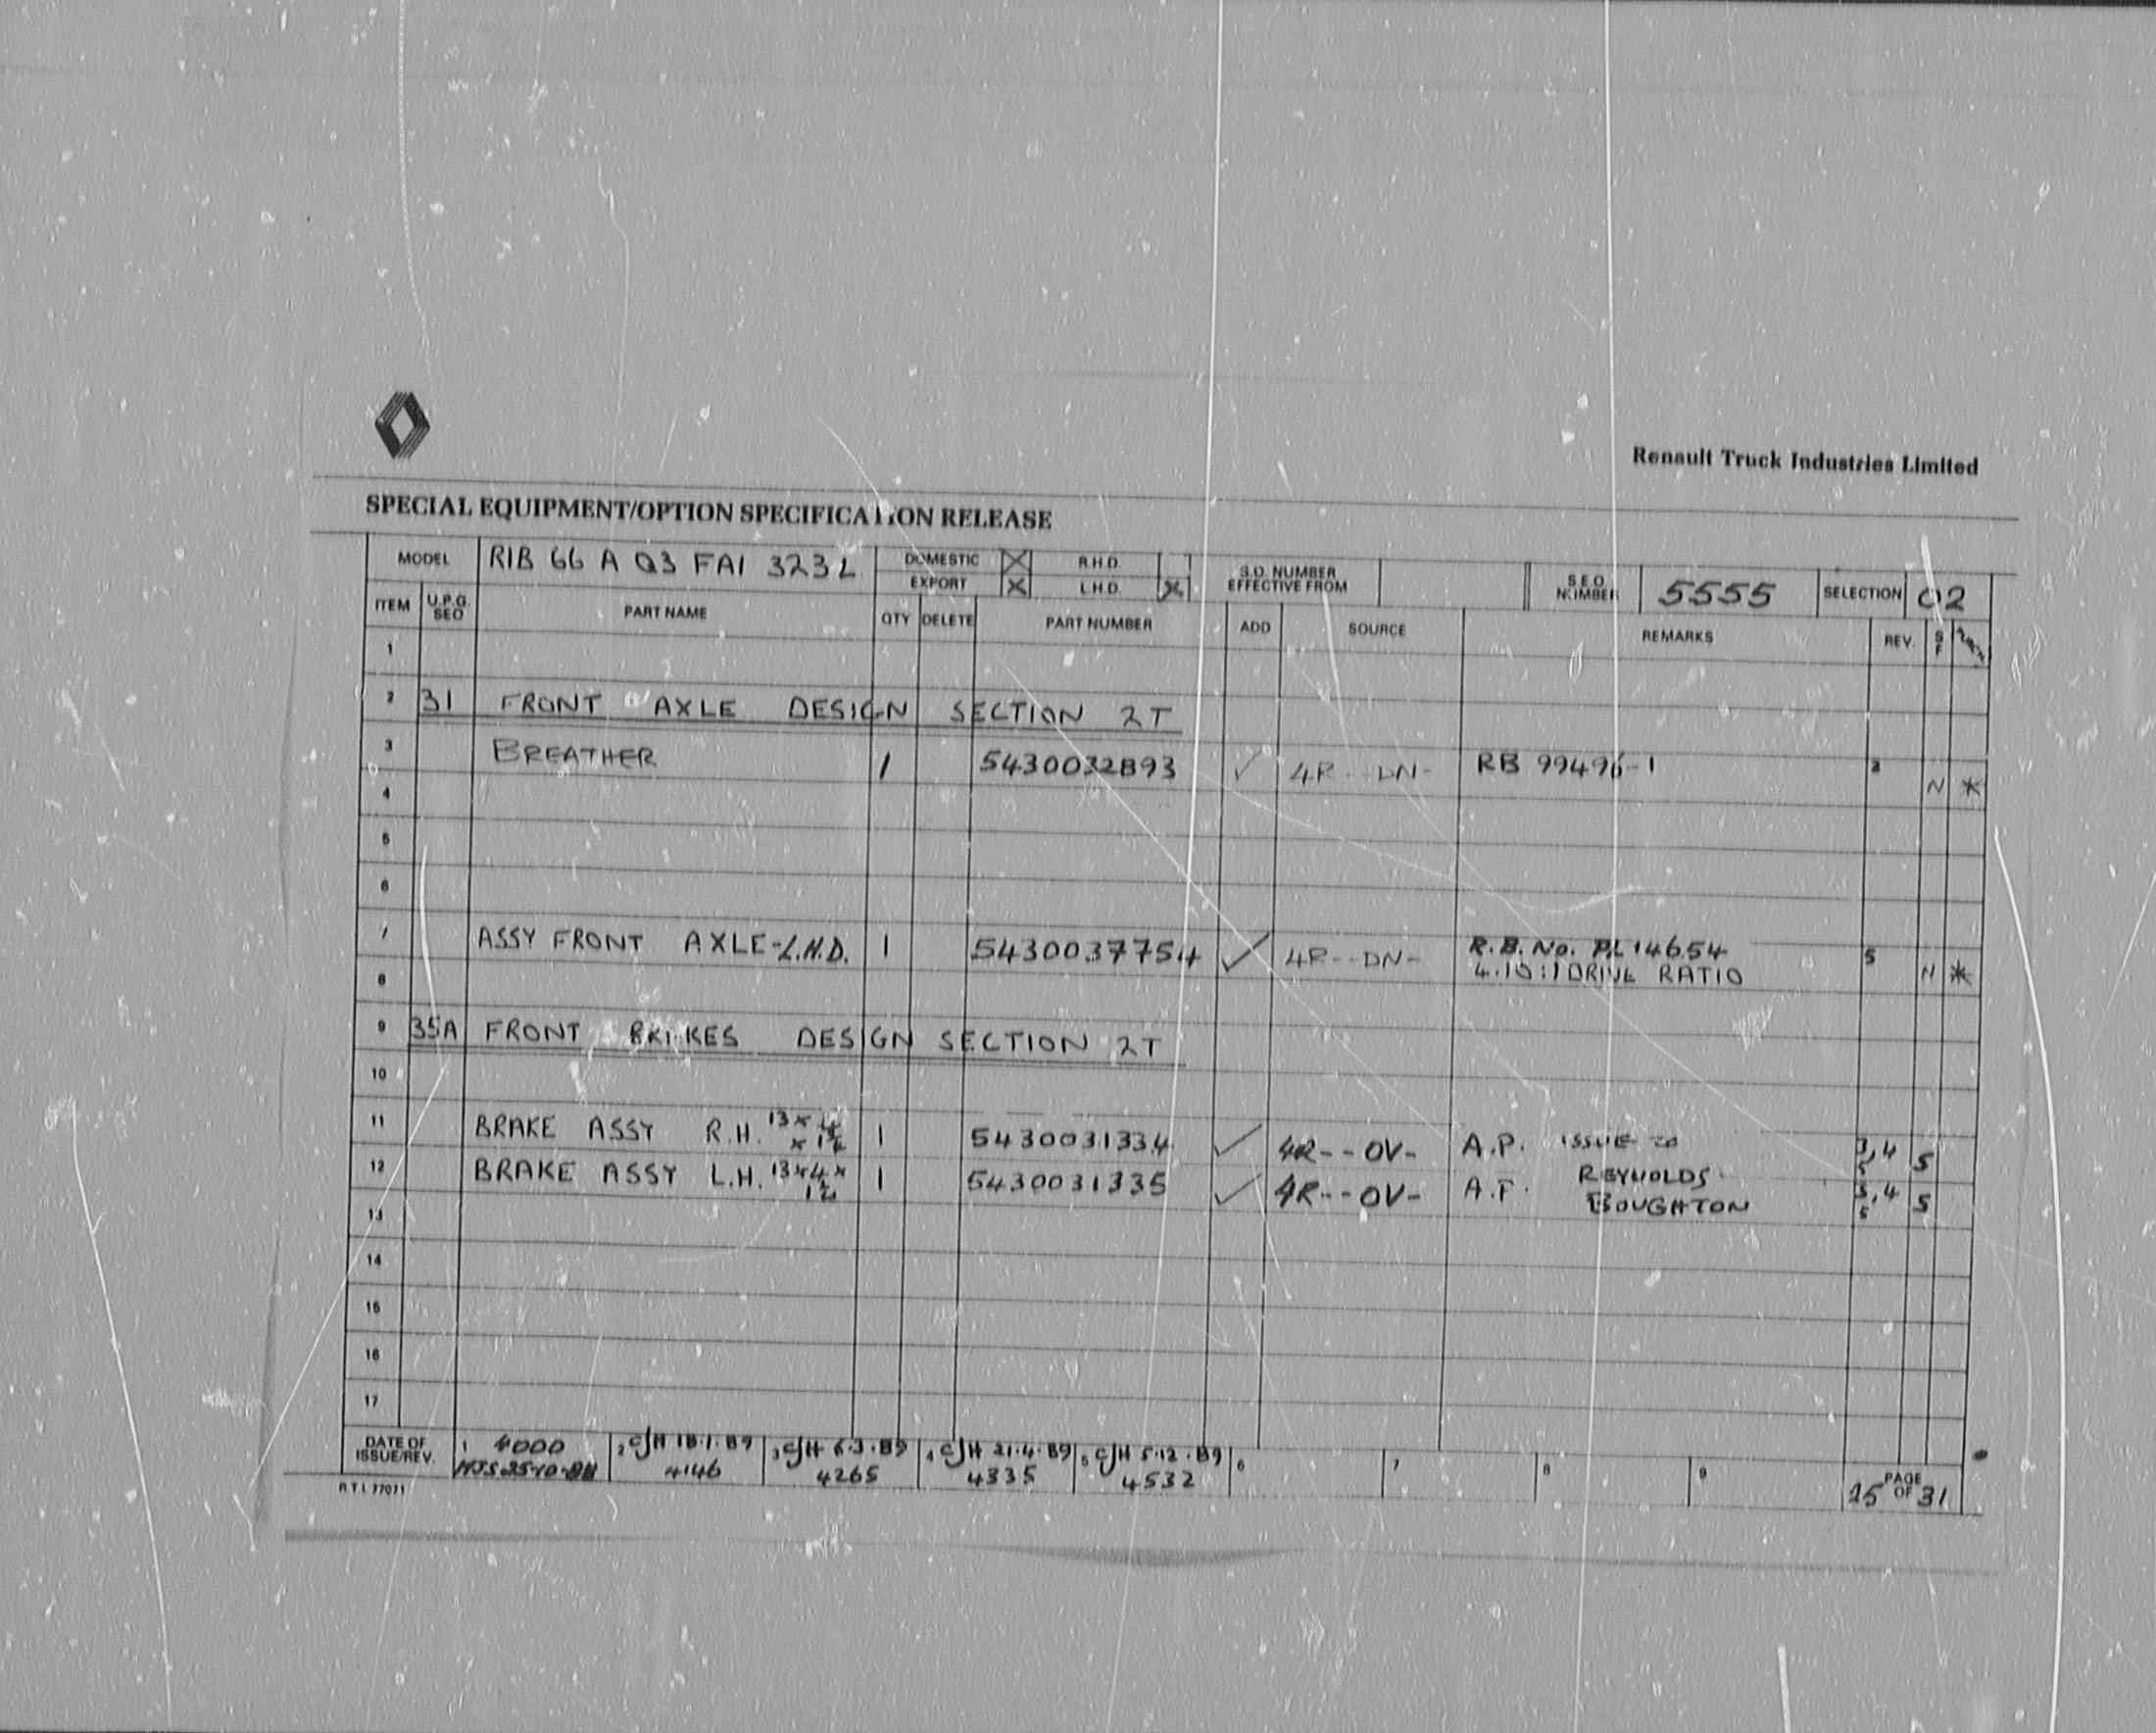 Renault Truck Industries Limited
SPECIAL EQUIPMENT/OPTION SPECIFICATION RELEASE
MODEL RIB 66 A Q3 FAI 323L DOMESTIC X R.H.D. S.O. NUMBER EFFECTIVE FROM S.E.O. NUMBER 5555 SELECTION 02
EXPORT X L.H.D. X
ITEM U.P.G. SEQ PART NAME QTY DELETE PART NUMBER ADD SOURCE REMARKS REV. S F
1
2 31 FRONT AXLE DESIGN SECTION 2T
3 BREATHER 1 5430032893 ✓ 4R---DN- RB 99496-1 2 N *
4
5
6
7 ASSY FRONT AXLE-L.H.D. 1 5430037754 ✓ 4R--DN- R.B. No. PL14654 5 N *
4.10:1 DRIVE RATIO
8
9 35A FRONT BRAKES DESIGN SECTION 2T
10
11 BRAKE ASSY R.H. 1 5430031334 ✓ 4R--OV- A.P. ISSUE TO 3,4 5 S
12 BRAKE ASSY L.H. 1 5430031335 ✓ 4R---OV- A.P. REYNOLDS BOUGHTON 3,4 5 S
13
14
15
16
17
DATE OF ISSUE/REV. 1 4000 2 CJH 18.1.89 3 CJH 6.3.89 4 CJH 21.4.89 5 CJH 5.12.89 6 7 8 9 PAGE 25 OF 31
MJS 25-10-88 4146 4265 4335 4532
R.T.I. 77071